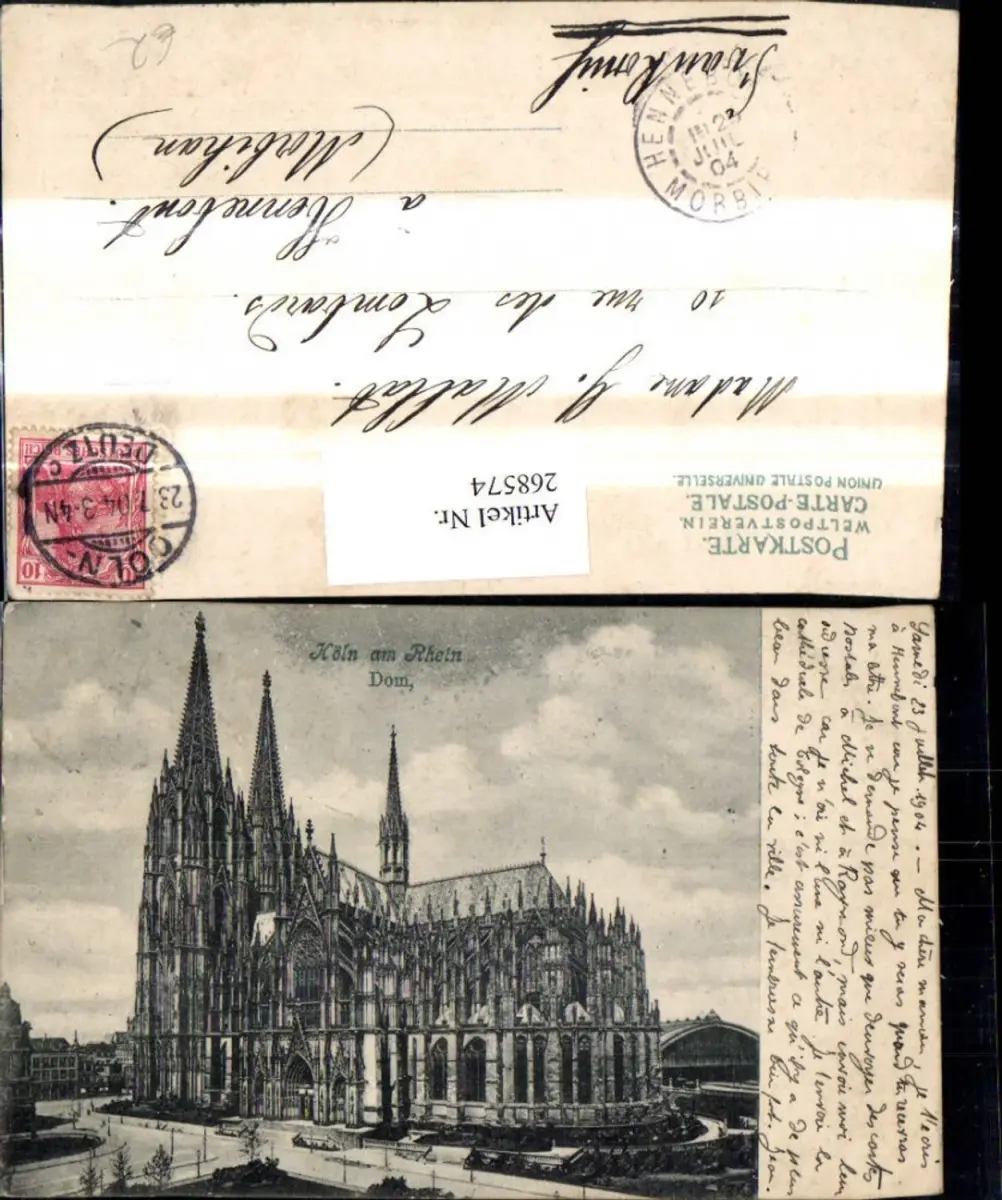 POSTKARTE.
WELTPOSTVEREIN.
CARTE-POSTALE.
UNION POSTALE UNIVERSELLE.
Artikel Nr.
268574
10
CÖLN-
23 7 04 3-4N
DEUTZ
c
Madame G. Mallat.
10 rue des Lombards.
à Hennebont.
(Morbihan)
Frankreich
HENNEBONT
23
JUIL
04
MORBIH
62
Köln am Rhein
Dom,
Samedi 23 Juillet 1904. — Ma chère maman, Je t'écris
à Hennebont car je pense que tu y seras quand tu recevras
ma lettre. Je ne demande pas mieux que d'envoyer des cartes
postales à Michel et à Raymond, mais envoie moi leur
adresse car je n'ai ni l'une ni l'autre. Je t'envoie la
cathédrale de Cologne; c'est assurément ce qu'il y a de plus
beau dans toute la ville. Je t'embrasse bien fort. Jean.